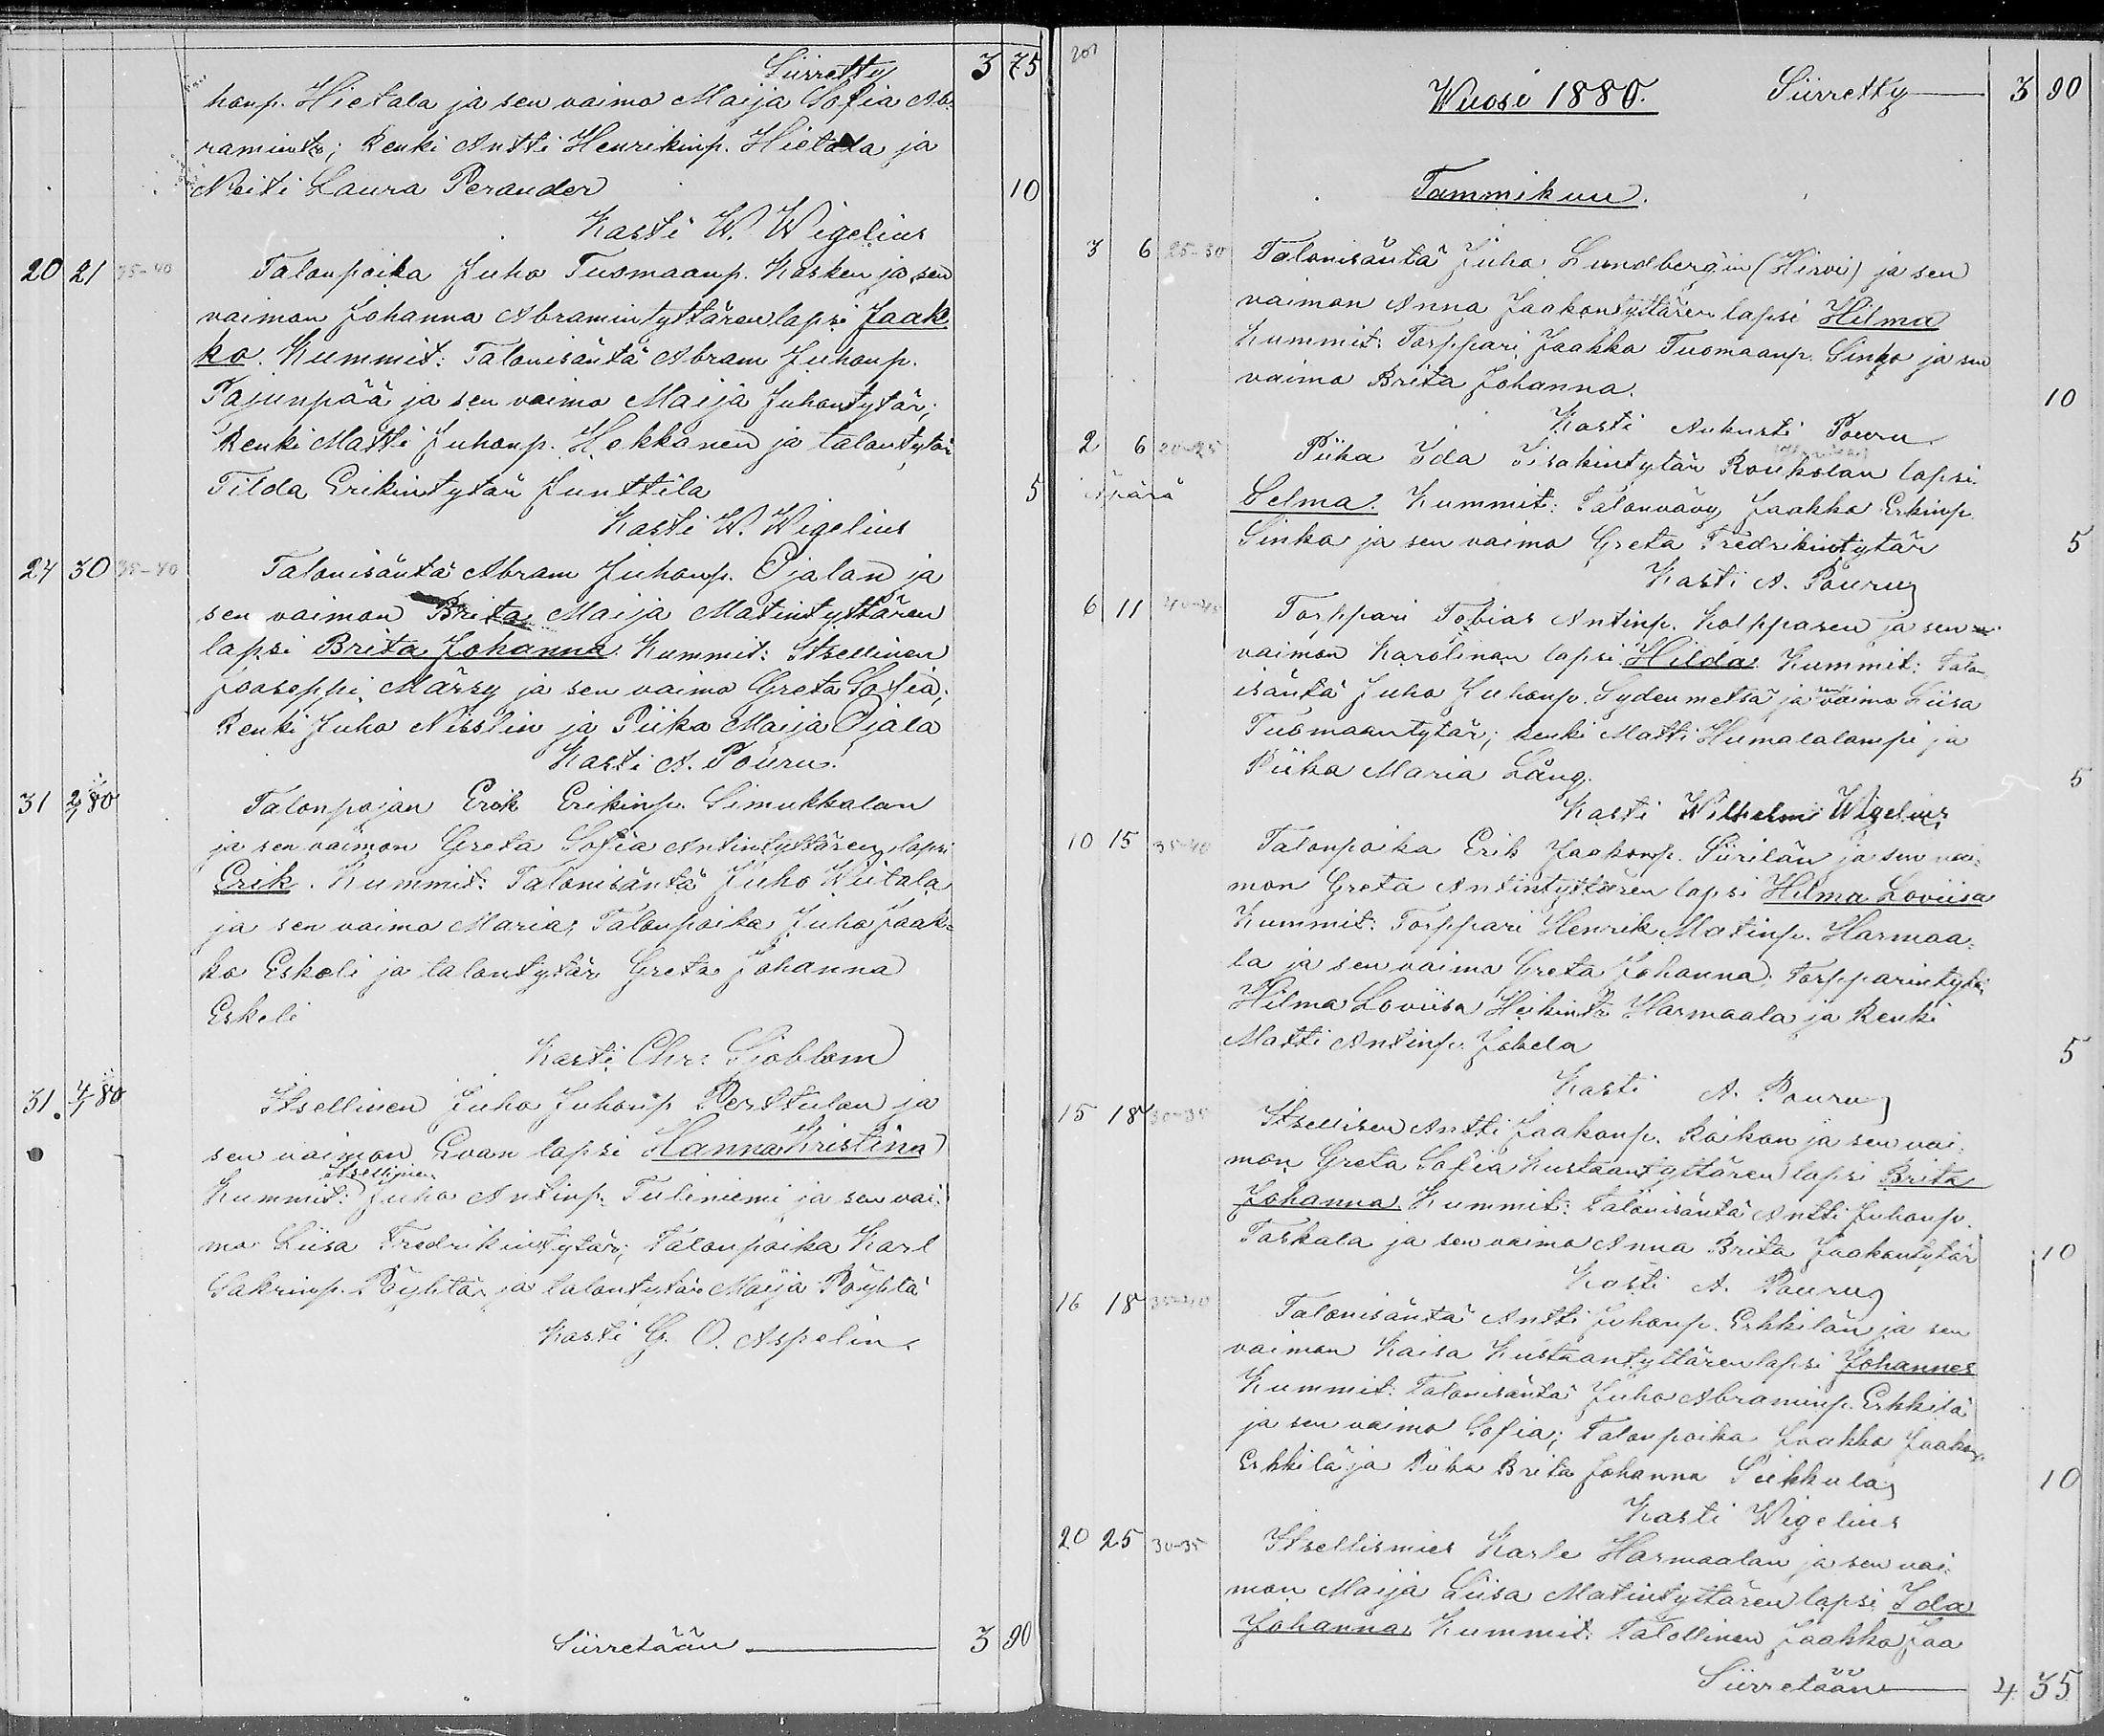 Siirretty 3 75
honp. Hietala ja sen vaimo Maija Sofia Ab-
ramintr; Renki Antti Henrikinp. Hietala ja
Neiti Laura Perander 10
Kasti W. Wigelius
20 21 35-40 Talonpoika Juho Tuomaanp. Kosken ja sen
vaimon Johanna Abramintyttären lapsi Jaak
ko. Kummit: Talonisäntä Abram Juhonp.
Pajunpää ja sen vaimo Maija Juhontytär;
Renki Matti Juhonp. Hokkanen ja talontytär
Tilda Erikintytär Junttila 5
Kasti W. Wigelius
24 30 35-40 Talonisäntä Abram Juhonp. Ojalan ja
sen vaimon Brita Maija Matintyttären
lapsi Brita Johanna. Kummit: Itsellinen
Jooseppi Märsy ja sen vaimo Greta Sofia;
Renki Juho Nisslin ja Piika Maija Ojala
Kasti A. Pouru.
31 2/1 80 Talonpojan Erik Erikinp. Simukkalan
ja sen vaimon Greta Sofia Antintyttären lapsi
Erik. Kummit: Talonisäntä Juho Wiitala
ja sen vaimo Maria; Talonpoika Juho Jaak-
ko Eskeli ja talontytär Greta Johanna
Eskeli
Kasti Chr. Sjöblom
31. 4/1 80 Itsellinen Juho Juhonp. Perttulan ja
sen vaimon Evan lapsi Hanna Kristina
Itsellinen
Kummit: Juho Antinp. Tuliniemi ja sen vai-
mo Liisa Fredrikintytär; Talonpoika Karl
Sakrinp. Pöyhtä ja talontytär Maija Pöyhtä
Kasti G. O. Aspelin.
Siirretään 3 90
201
Wuosi 1880. Siirretty 3 90
Tammikuu.
3 6 25-30 Talonisäntä Juho Lundbergin (Hirvi) ja sen
vaimon Anna Jaakontyttären lapsi Hilma
Kummit: Torppari Jaakko Tuomaanp. Sinko ja sen
vaimo Brita Johanna. 10
Kasti Aukusti Pouru
2 6 20-25 Piika Ida Iisakintytär Roukolan lapsi
Äpärä Selma. Kummit: Talonvävy Jaakko Erkinp.
Sinko ja sen vaimo Greta Fredrikintytär 5
Kasti A. Pouru
6 11 40-45 Torppari Tobias Antinp. Kolpparen ja sen
vaimon Karolinan lapsi Hilda. Kummit: Talon
isäntä Juho Juhonp. Sydenmetsä ja sen vaimo Liisa
Tuomaantytär; renki Matti Humalalampi ja
Piika Maria Lång. 5
Kasti Wilhelmi Wigelius
10 15 35-40 Talonpoika Erik Jaakonp. Siirilän ja sen vai-
mon Greta Antintyttären lapsi Hilma Loviisa
Kummit: Torppari Henrik Matinp. Harmaa-
la ja sen vaimo Greta Johanna; Torpparintytär
Hilma Loviisa Heikintr Harmaala ja Renki
Matti Antinp. Jokela 5
Kasti A. Pouru
15 18 30-35 Itsellisen Antti Jaakonp. Roikon ja sen vai-
mon Greta Sofia Kustaantyttären lapsi Brita
Johanna. Kummit: Talonisäntä Antti Juhonp.
Taskala ja sen vaimo Anna Brita Jaakontytär 10
Kasti A. Pouru
16 18 35-40 Talonisäntä Antti Juhonp. Erkkilän ja sen
vaimon Kaisa Kustaantyttären lapsi Johannes
Kummit: Talonisäntä Juho Abraminp. Erkkilä
ja sen vaimo Sofia; Talonpoika Jaakko Jaakonp.
Erkkilä ja Piika Brita Johanna Piikkula 10
Kasti Wigelius
20 25 30-35 Itsellismies Karle Harmaalan ja sen vai-
mon Maija Liisa Matintyttären lapsi Ida
Johanna. Kummit: Talollinen Jaakko Jaa
Siirretään 4 35